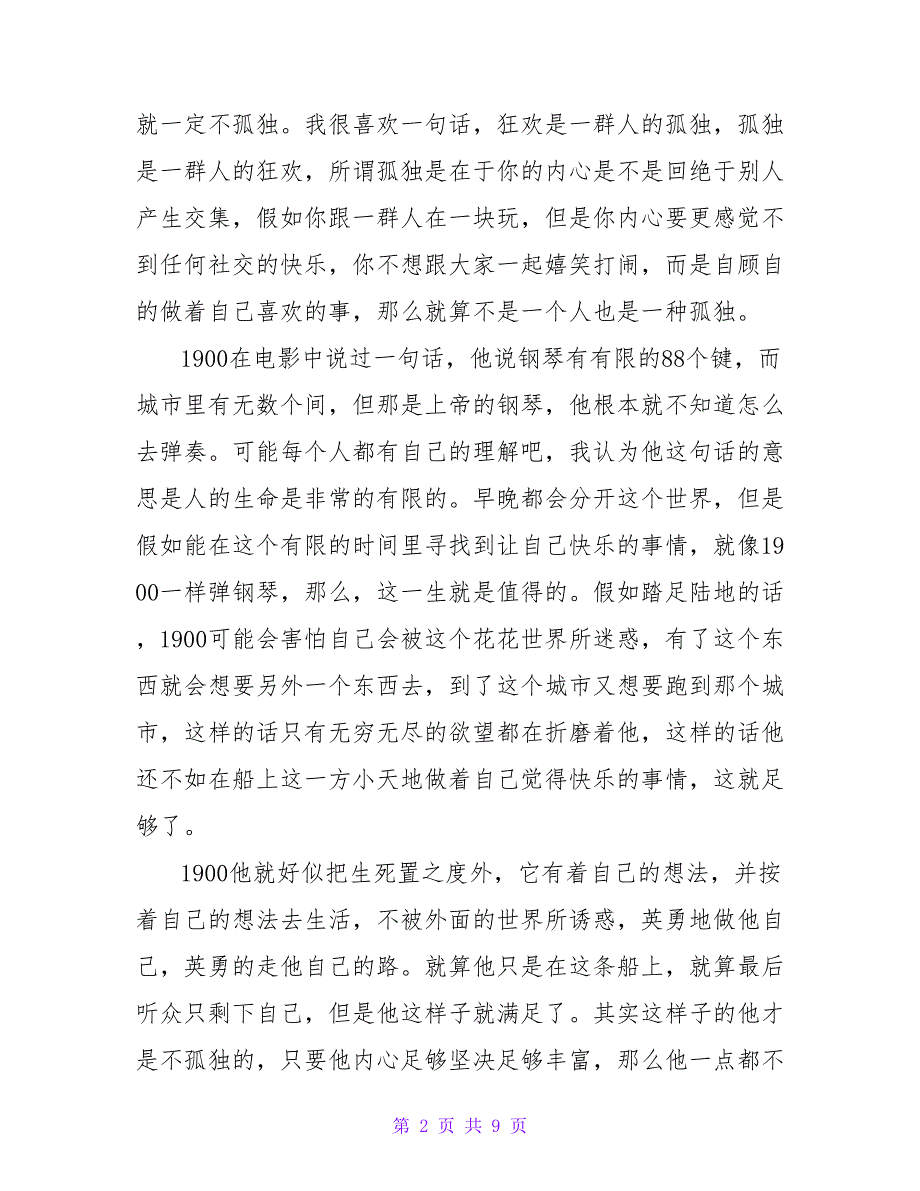 就一定不孤独。我很喜欢一句话，狂欢是一群人的孤独，孤独
是一群人的狂欢，所谓孤独是在于你的内心是不是回绝于别人
产生交集，假如你跟一群人在一块玩，但是你内心要更感觉不
到任何社交的快乐，你不想跟大家一起嬉笑打闹，而是自顾自
的做着自己喜欢的事，那么就算不是一个人也是一种孤独。
1900在电影中说过一句话，他说钢琴有有限的88个键，而
城市里有无数个间，但那是上帝的钢琴，他根本就不知道怎么
去弹奏。可能每个人都有自己的理解吧，我认为他这句话的意
思是人的生命是非常的有限的。早晚都会分开这个世界，但是
假如能在这个有限的时间里寻找到让自己快乐的事情，就像19
00一样弹钢琴，那么，这一生就是值得的。假如踏足陆地的话
，1900可能会害怕自己会被这个花花世界所迷惑，有了这个东
西就会想要另外一个东西去，到了这个城市又想要跑到那个城
市，这样的话只有无穷无尽的欲望都在折磨着他，这样的话他
还不如在船上这一方小天地做着自己觉得快乐的事情，这就足
够了。
1900他就好似把生死置之度外，它有着自己的想法，并按
着自己的想法去生活，不被外面的世界所诱惑，英勇地做他自
己，英勇的走他自己的路。就算他只是在这条船上，就算最后
听众只剩下自己，但是他这样子就满足了。其实这样子的他才
是不孤独的，只要他内心足够坚决足够丰富，那么他一点都不
第 2 页 共 9 页